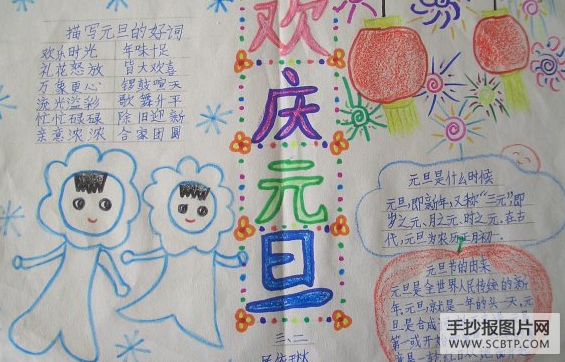 描写元旦的好词
欢乐时光 年味十足
礼花怒放 皆大欢喜
万象更心 锣鼓喧天
流光溢彩 歌舞升平
忙忙碌碌 除旧迎新
亲意浓浓 合家团圆
欢
庆
元
旦
三、二
元旦是什么时候
元旦,即新年,又称“三元”即
岁之元、月之元、时之元。在古
代,元旦为农历正月初一
元旦节的由来
元旦是全世界人民传统的新
年,元旦就是一年的头一天,元
旦是合成
第一或开始
手抄报图片网
WWW.SCBTP.COM